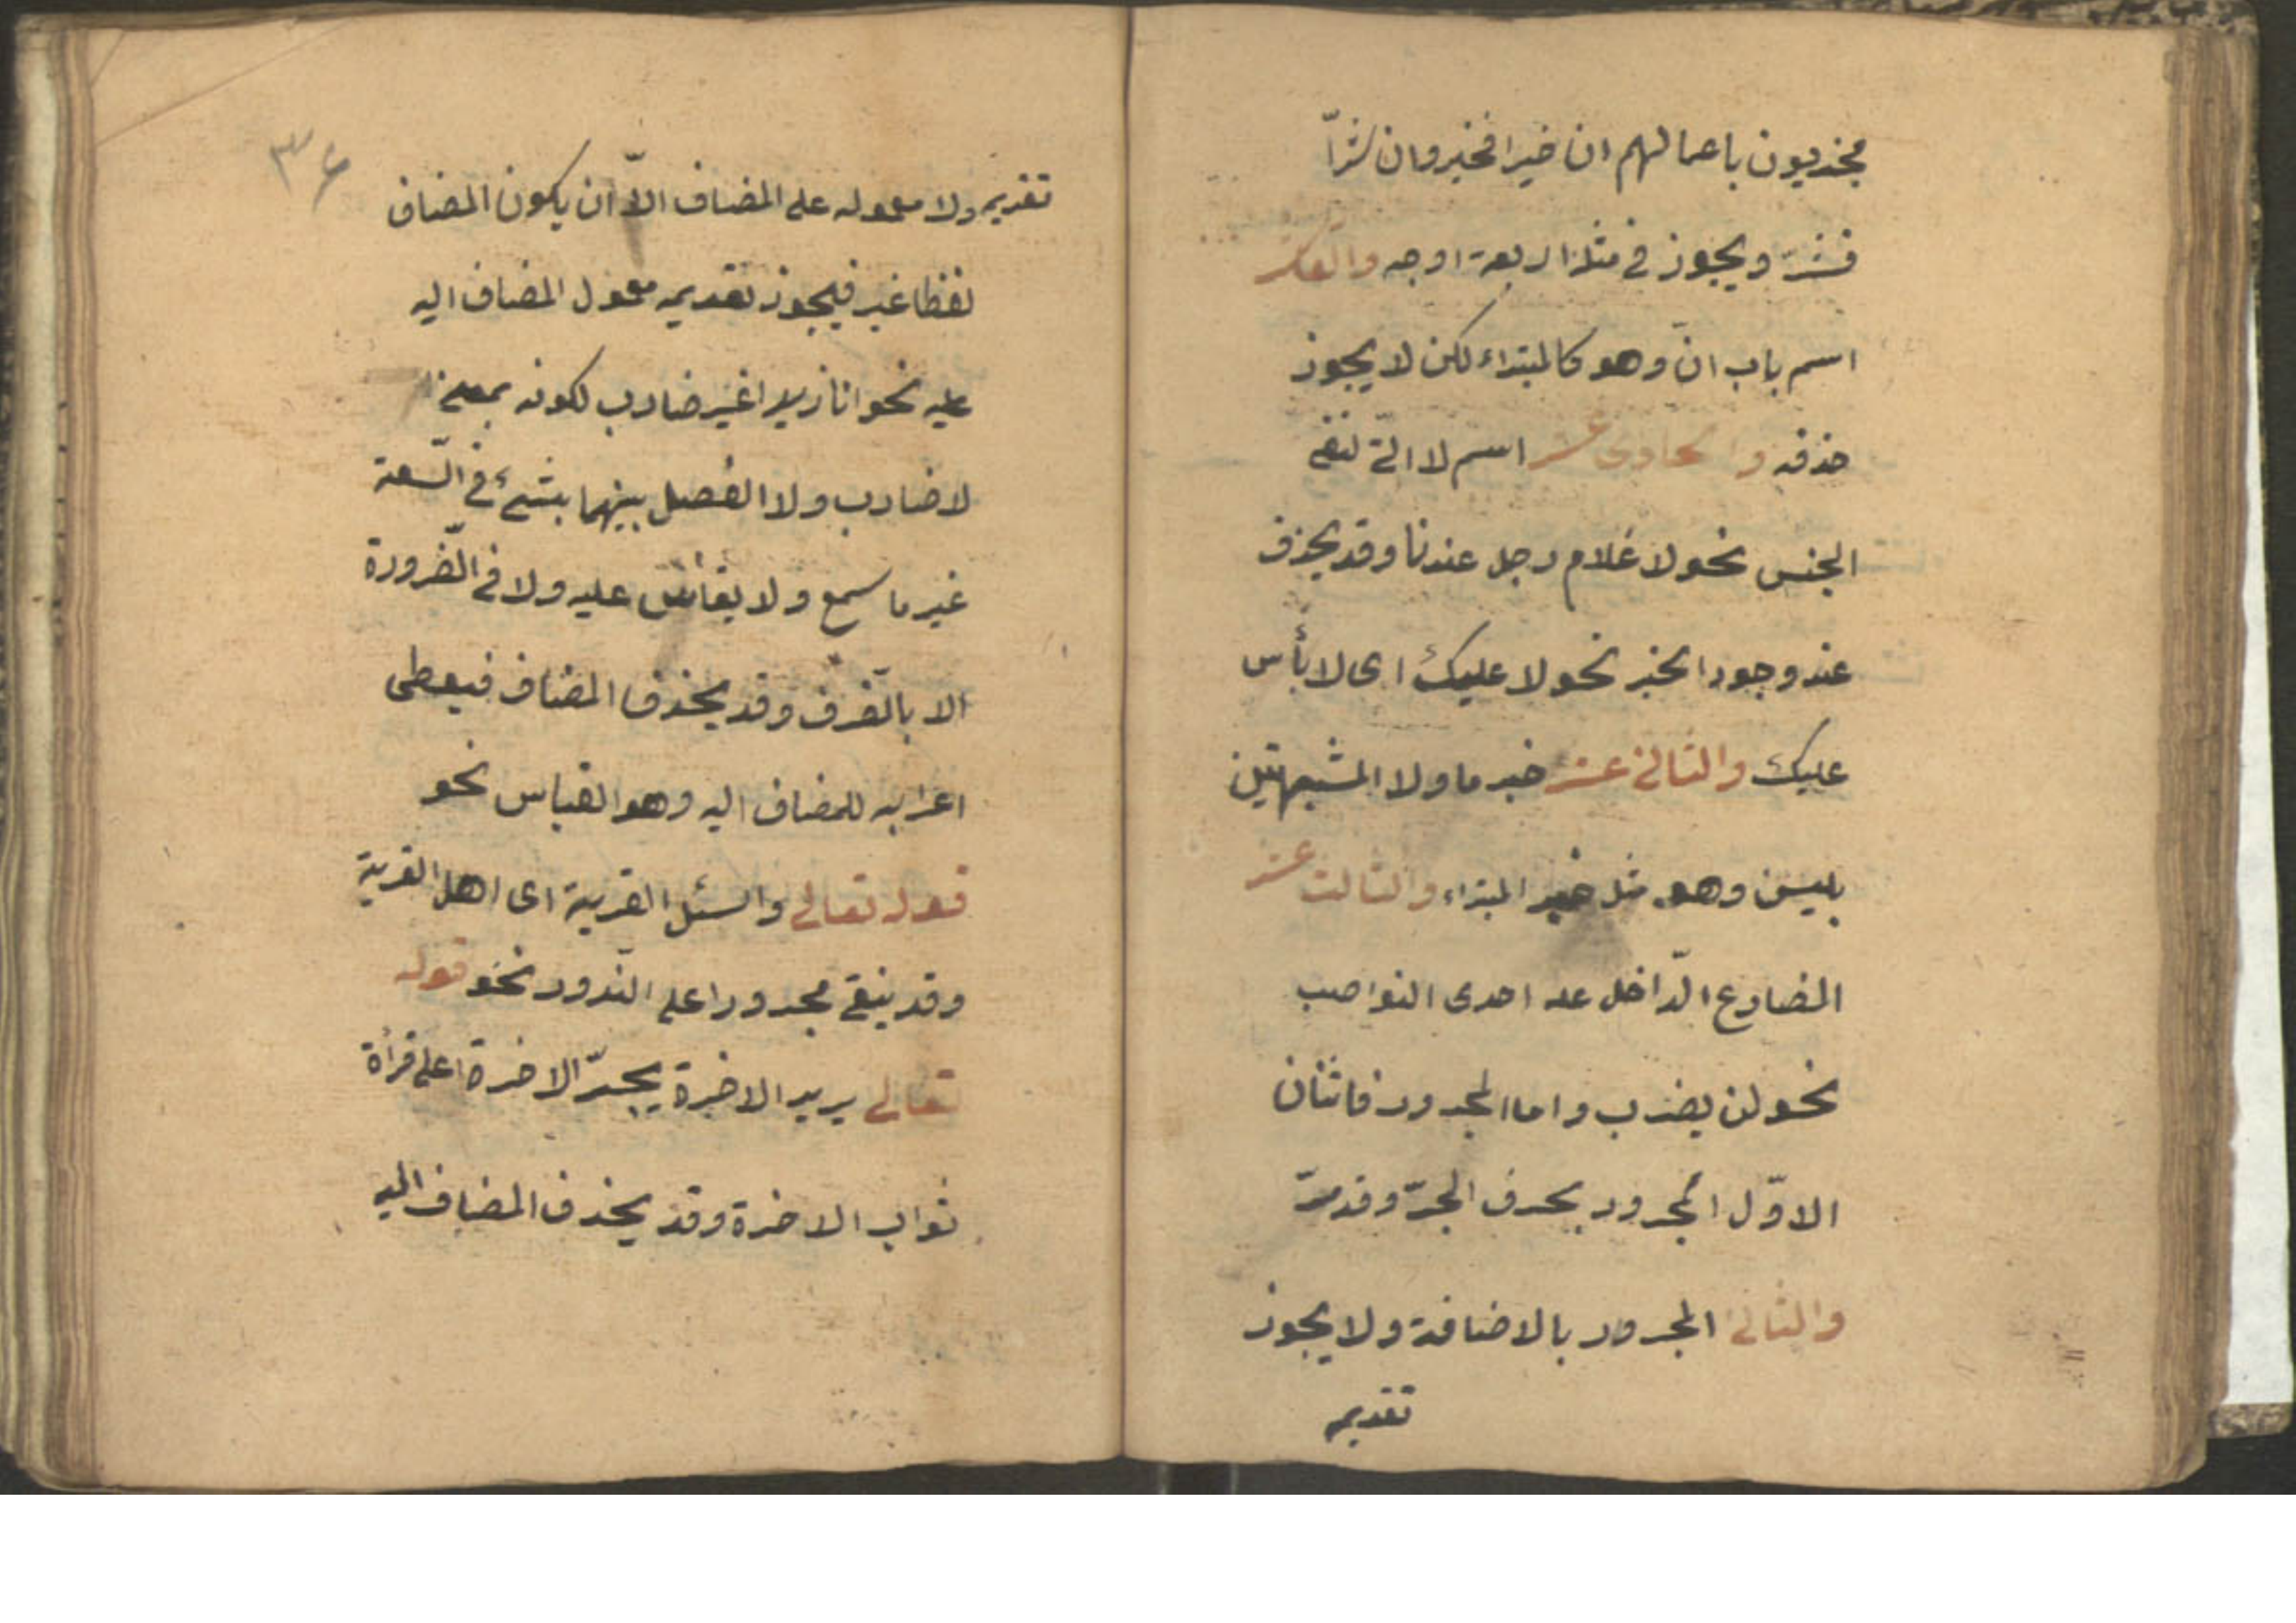 مجزيون باعمالهم ان خيرا فخير وان شرّا
فشرّ ويجوز في مثله اربعة اوجه والعاشر
اسم باب انّ وهو كالمبتداء لكن لا يجوز
حذفه والحادى عشر اسم لا الّتى لنفى
الجنس نحو لا غلام رجل عندنا وقد يحذف
عند وجود الخبر نحو لا عليك اى لا بأس
عليك والثانى عشر خبر ما ولا المشبهتين
بليس وهو مثل خبر المبتداء والثالث عشر
المضارع الدّاخل عليه احدى النواصب
نحو لن يضرب واما المجرور فاثنان
الاوّل المجرور بحرف الجرّ وقد مرّ
والثانى المجرور بالاضافة ولا يجوز
تقديمه
٣٤
تقديمه ولا معموله على المضاف الاّ ان يكون المضاف
لفظا غير فيجوز تقديم معمول المضاف اليه
عليه نحو انا زيدا غير ضارب لكونه بمعنى
لا ضارب ولا الفصل بينهما بشئ في السّعة
غير ما سمع ولا يقاس عليه ولا في الضّرورة
الا بالظّرف وقد يحذف المضاف فيعطى
اعرابه للمضاف اليه وهو القياس نحو
قوله تعالى واسئل القرية اى اهل القرية
وقد يبقى مجرورا على النّدور نحو قوله
تعالى يريد الاخرة بجرّ الاخرة على قرأة
ثواب الاخرة وقد يحذف المضاف اليه